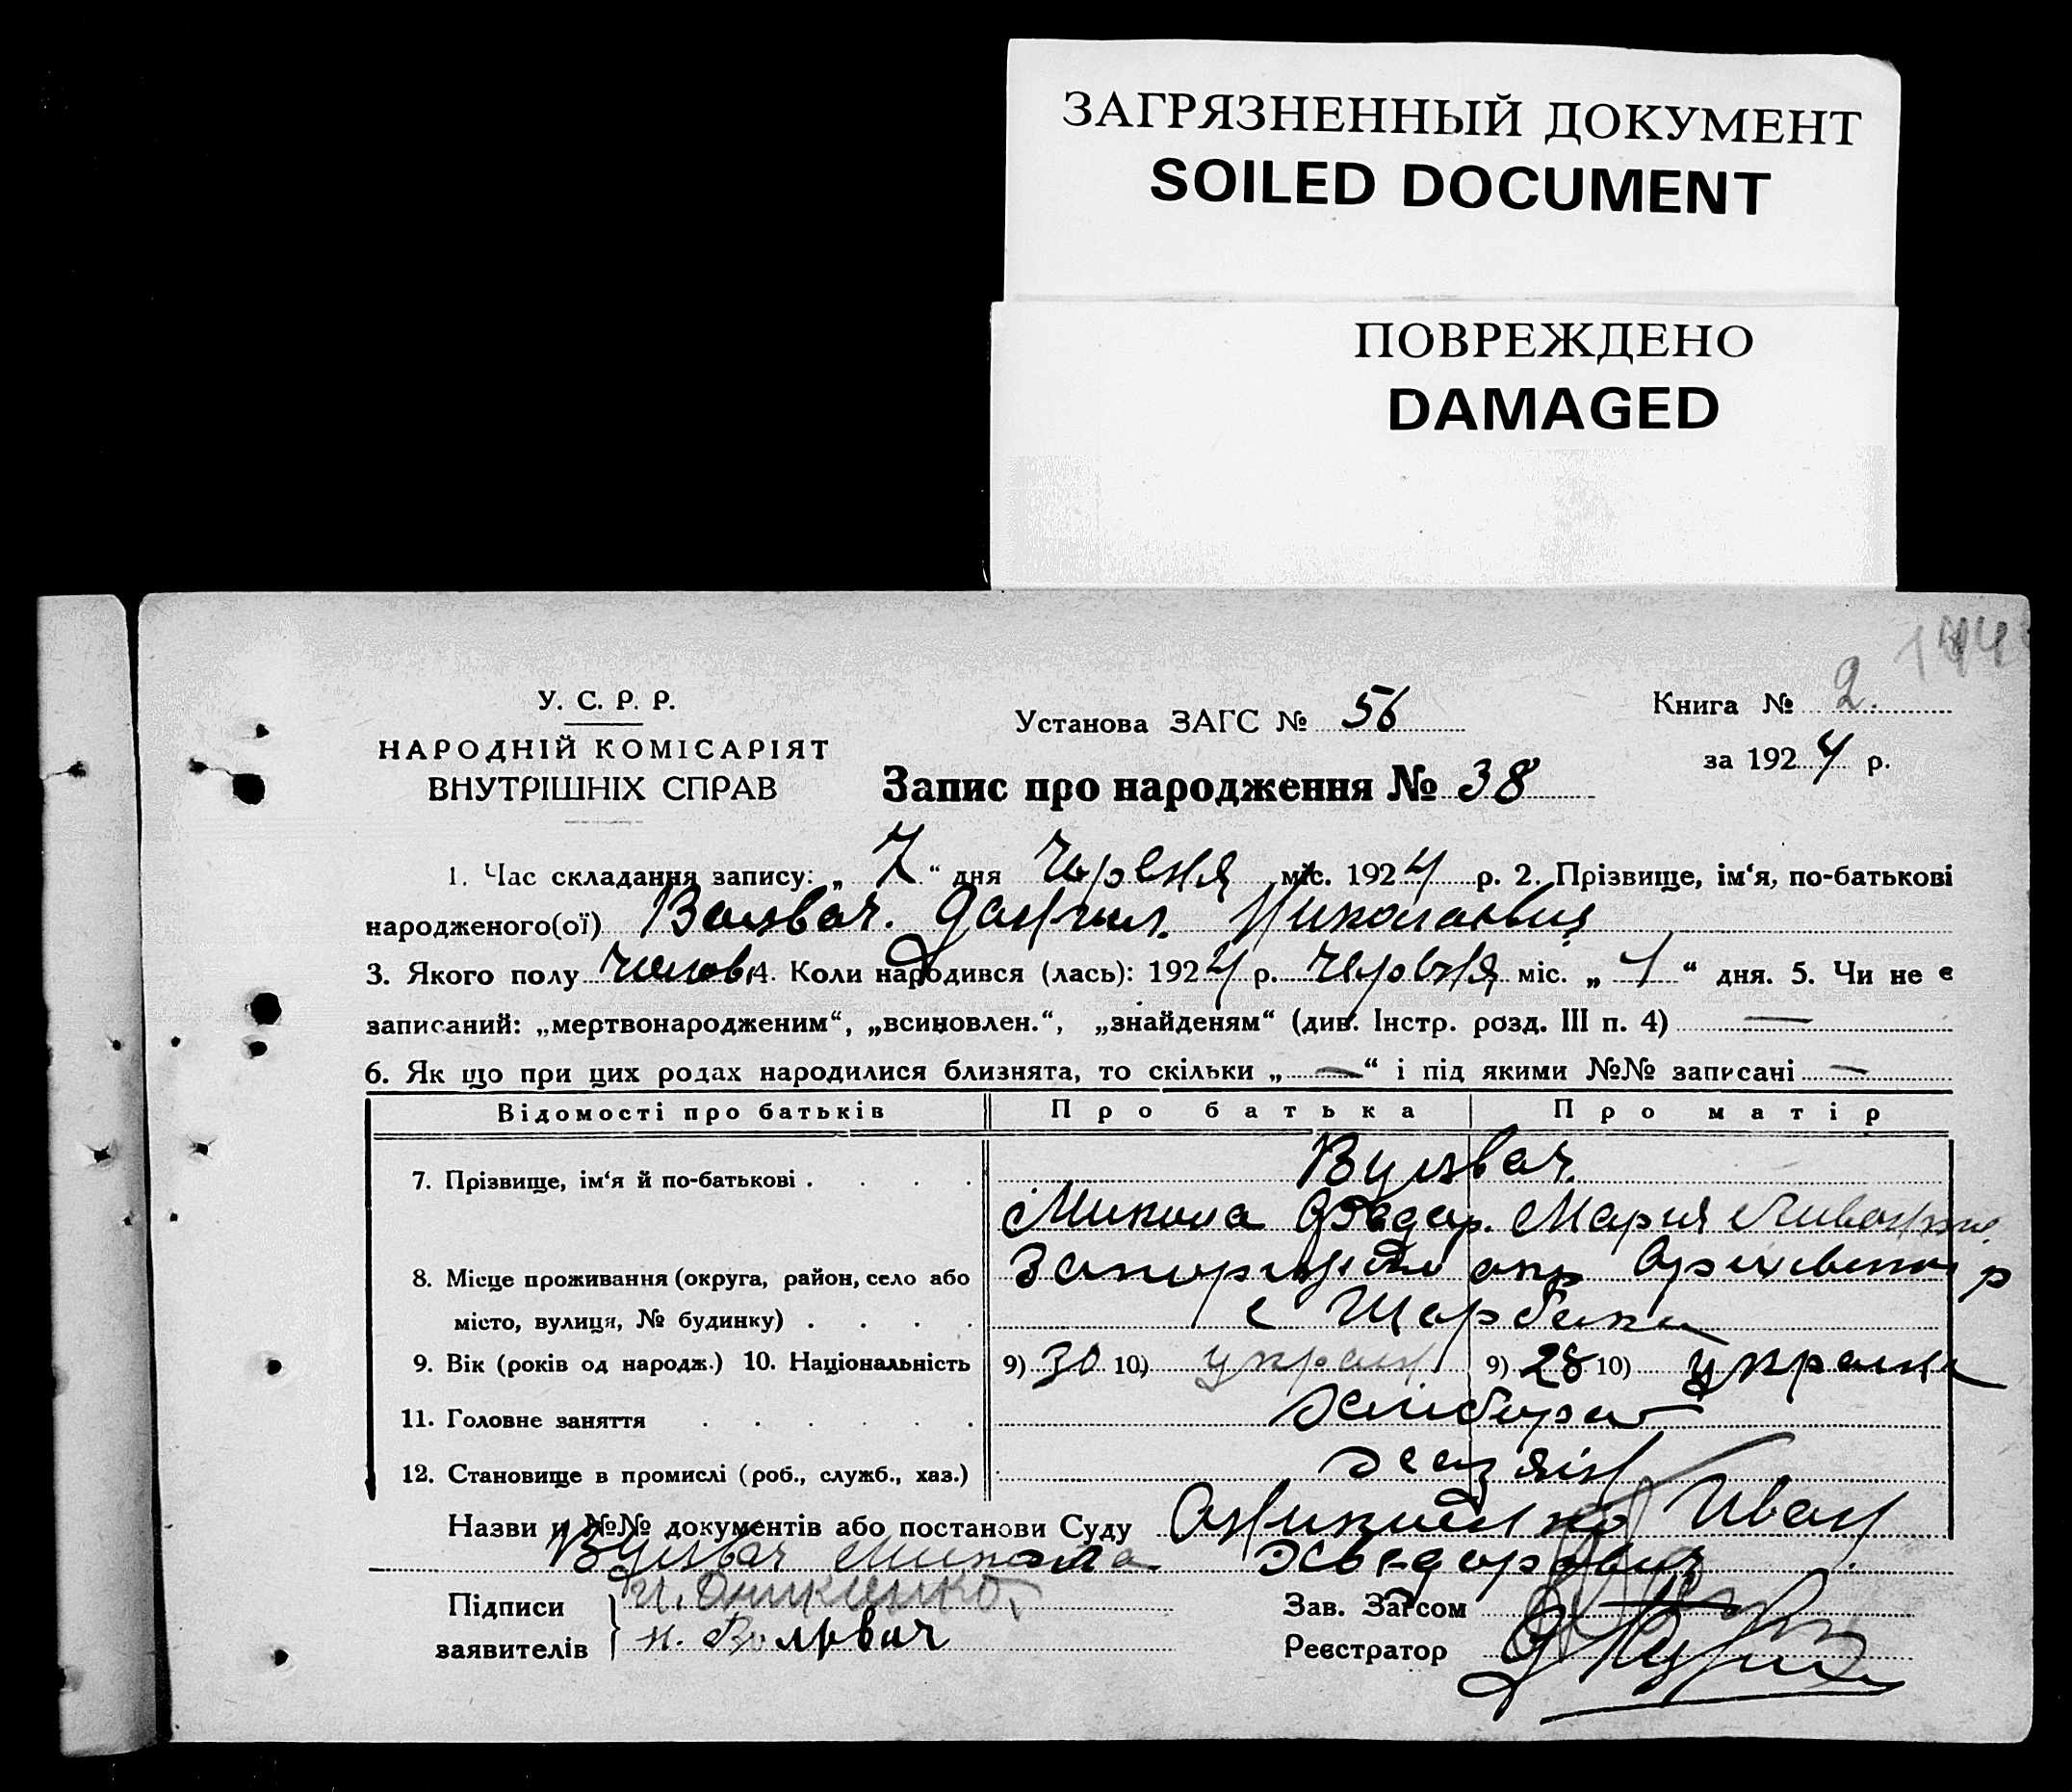 ЗАГРЯЗНЕННЫЙ ДОКУМЕНТ
SOILED DOCUMENT
ПОВРЕЖДЕНО
DAMAGED
144
У. С. Р. Р.
НАРОДНІЙ КОМІСАРІЯТ
ВНУТРІШНІХ СПРАВ
Установа ЗАГС № 56
Книга № 2.
за 1924 р.
Запис про народження № 38
1. Час складання запису: „ 7 “ дня червня міс. 1924 р. 2. Прізвище, ім‘я, по-батькові
народженого(ої) Николаевич
3. Якого полу чолов. 4. Коли народився (лась): 1924 р. червня міс. „ 1 “ дня. 5. Чи не є
записаний: „мертвонародженим“, „всиновлен.“, „знайденям“ (див. Інстр. розд. III п. 4) —
6. Як що при цих родах народилися близнята, то скільки „ — “ і під якими №№ записані —
Відомості про батьків Про батька Про матір
7. Прізвище, ім‘я й по-батькові . . . .
Микола Федор. Мария
8. Місце проживання (округа, район, село або
місто, вулиця, № будинку) . . . . с
9. Вік (років од народж.) 10. Національність 9) 30 10) украин 9) 28 10) украин
11. Головне заняття . . . . . . хлібороб
12. Становище в промислі (роб., служб., хаз.) хазяїн
Назви и №№ документів або постанови Суду Иван
Микола
Підписи
заявителів
Н. Вольвач
Зав. Загсом
Реєстратор